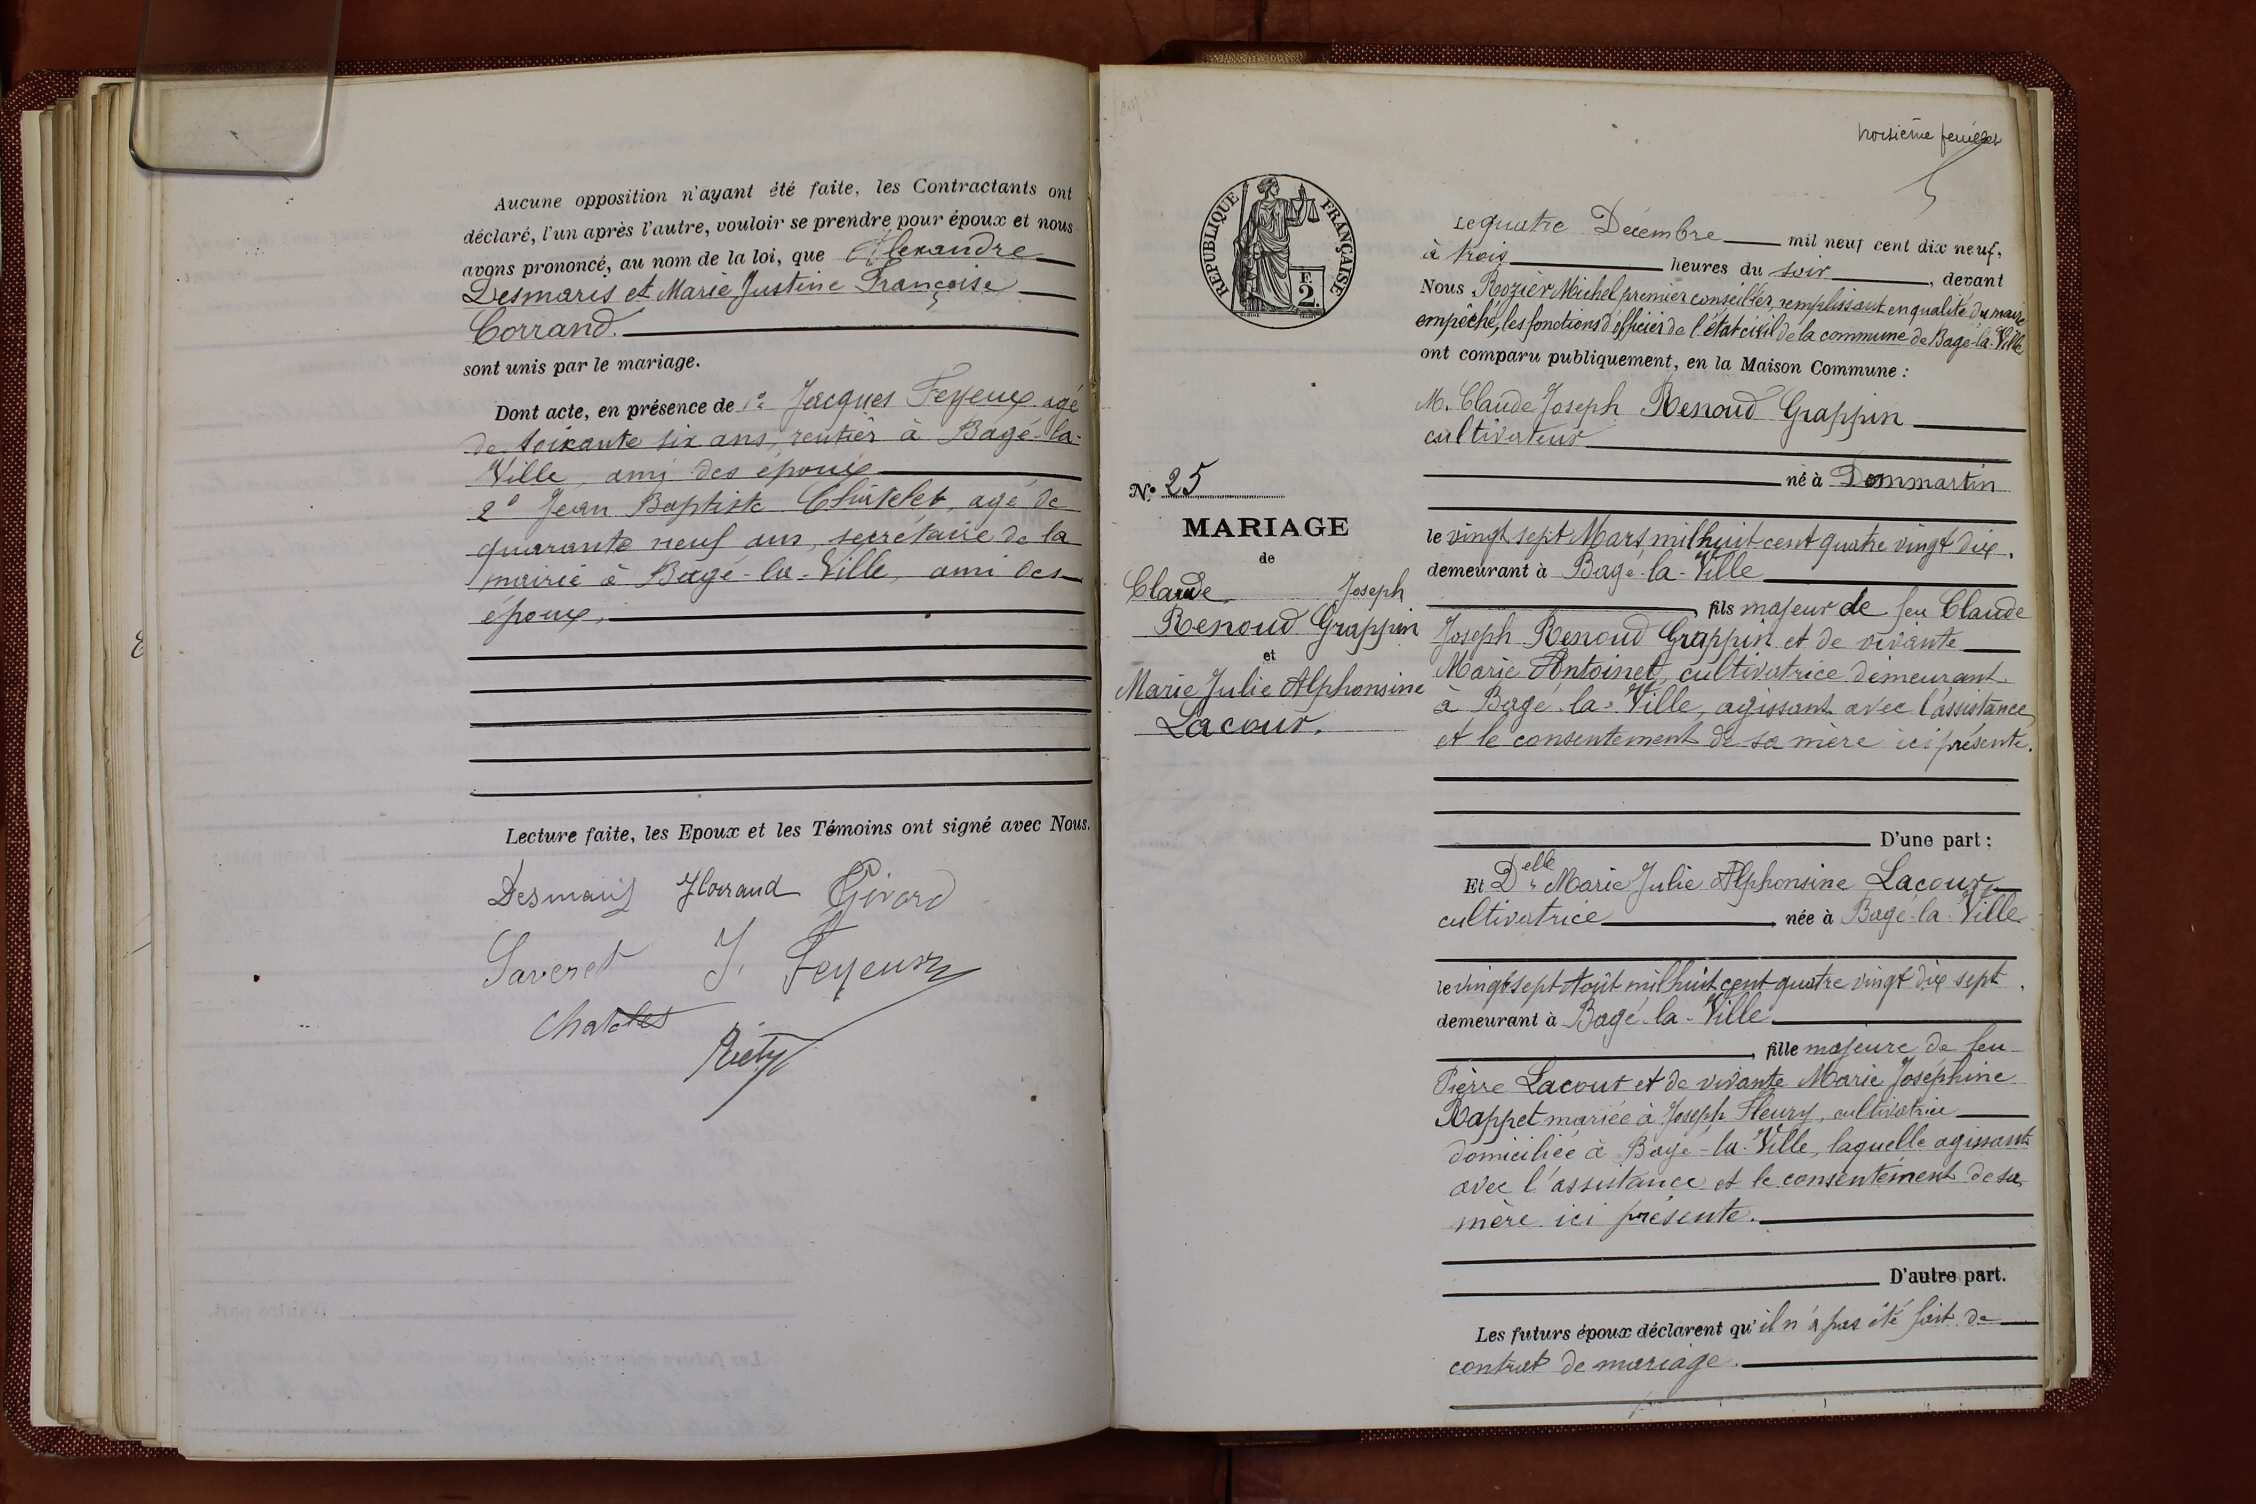 Aucune opposition n'ayant été faite, les Contractants ont
déclaré, l'un après l'autre, vouloir se prendre pour époux et nous
avons prononcé, au nom de la loi, que Alexandre
Desmaris et Marie Justine Françoise
Corrand.
sont unis par le mariage.
Dont acte, en présence de 1° Jacques Feyeux agé
de soixante six ans, rentier à Bagé-la-
Ville, ami des époux
2° Jean Baptiste Châtelet, agé de
quarante neuf ans, secrétaire de la
mairie à Bagé-la-Ville, ami des
époux,
Lecture faite, les Epoux et les Témoins ont signé avec Nous.
Desmaris
Saveret J. Feyeux
troisième feuillet
RÉPUBLIQUE FRANÇAISE
F.
2.
Le quatre Décembre mil neuf cent dix neuf,
à trois heures du soir, devant
Nous Rozier Michel premier conseiller, remplissant en qualité du maire
empêché, les fonctions d'officier de l'état civil de la commune de Bagé-la-Ville
ont comparu publiquement, en la Maison Commune :
M. Claude Joseph Renoud Grappin
cultivateur
né à Dommartin
le vingt sept Mars mil huit cent quatre vingt dix.
demeurant à Bagé-la-Ville
, fils majeur de feu Claude
Joseph Renoud Grappin et de vivante
Marie Antoinet, cultivatrice demeurant
à Bagé-la-Ville, agissant avec l'assistance
et le consentement de sa mère ici présente.
D'une part ;
N° 25
MARIAGE
de
Claude Joseph
Renoud Grappin
et
Marie Julie Alphonsine
Lacour.
Et Delle Marie Julie Alphonsine Lacour
cultivatrice née à Bagé-la-Ville
le vingt sept Août mil huit cent quatre vingt dix sept.
demeurant à Bagé-la-Ville
, fille majeure de feu
Pierre Lacour et de vivante Marie Joséphine
Rappet mariée à Joseph Fleury, cultivatrice
domiciliée à Bagé-la-Ville, laquelle agissant
avec l'assistance et le consentement de sa
mère ici présente.
D'autre part.
Les futurs époux déclarent qu'il n'a pas été fait de
contrat de mariage.